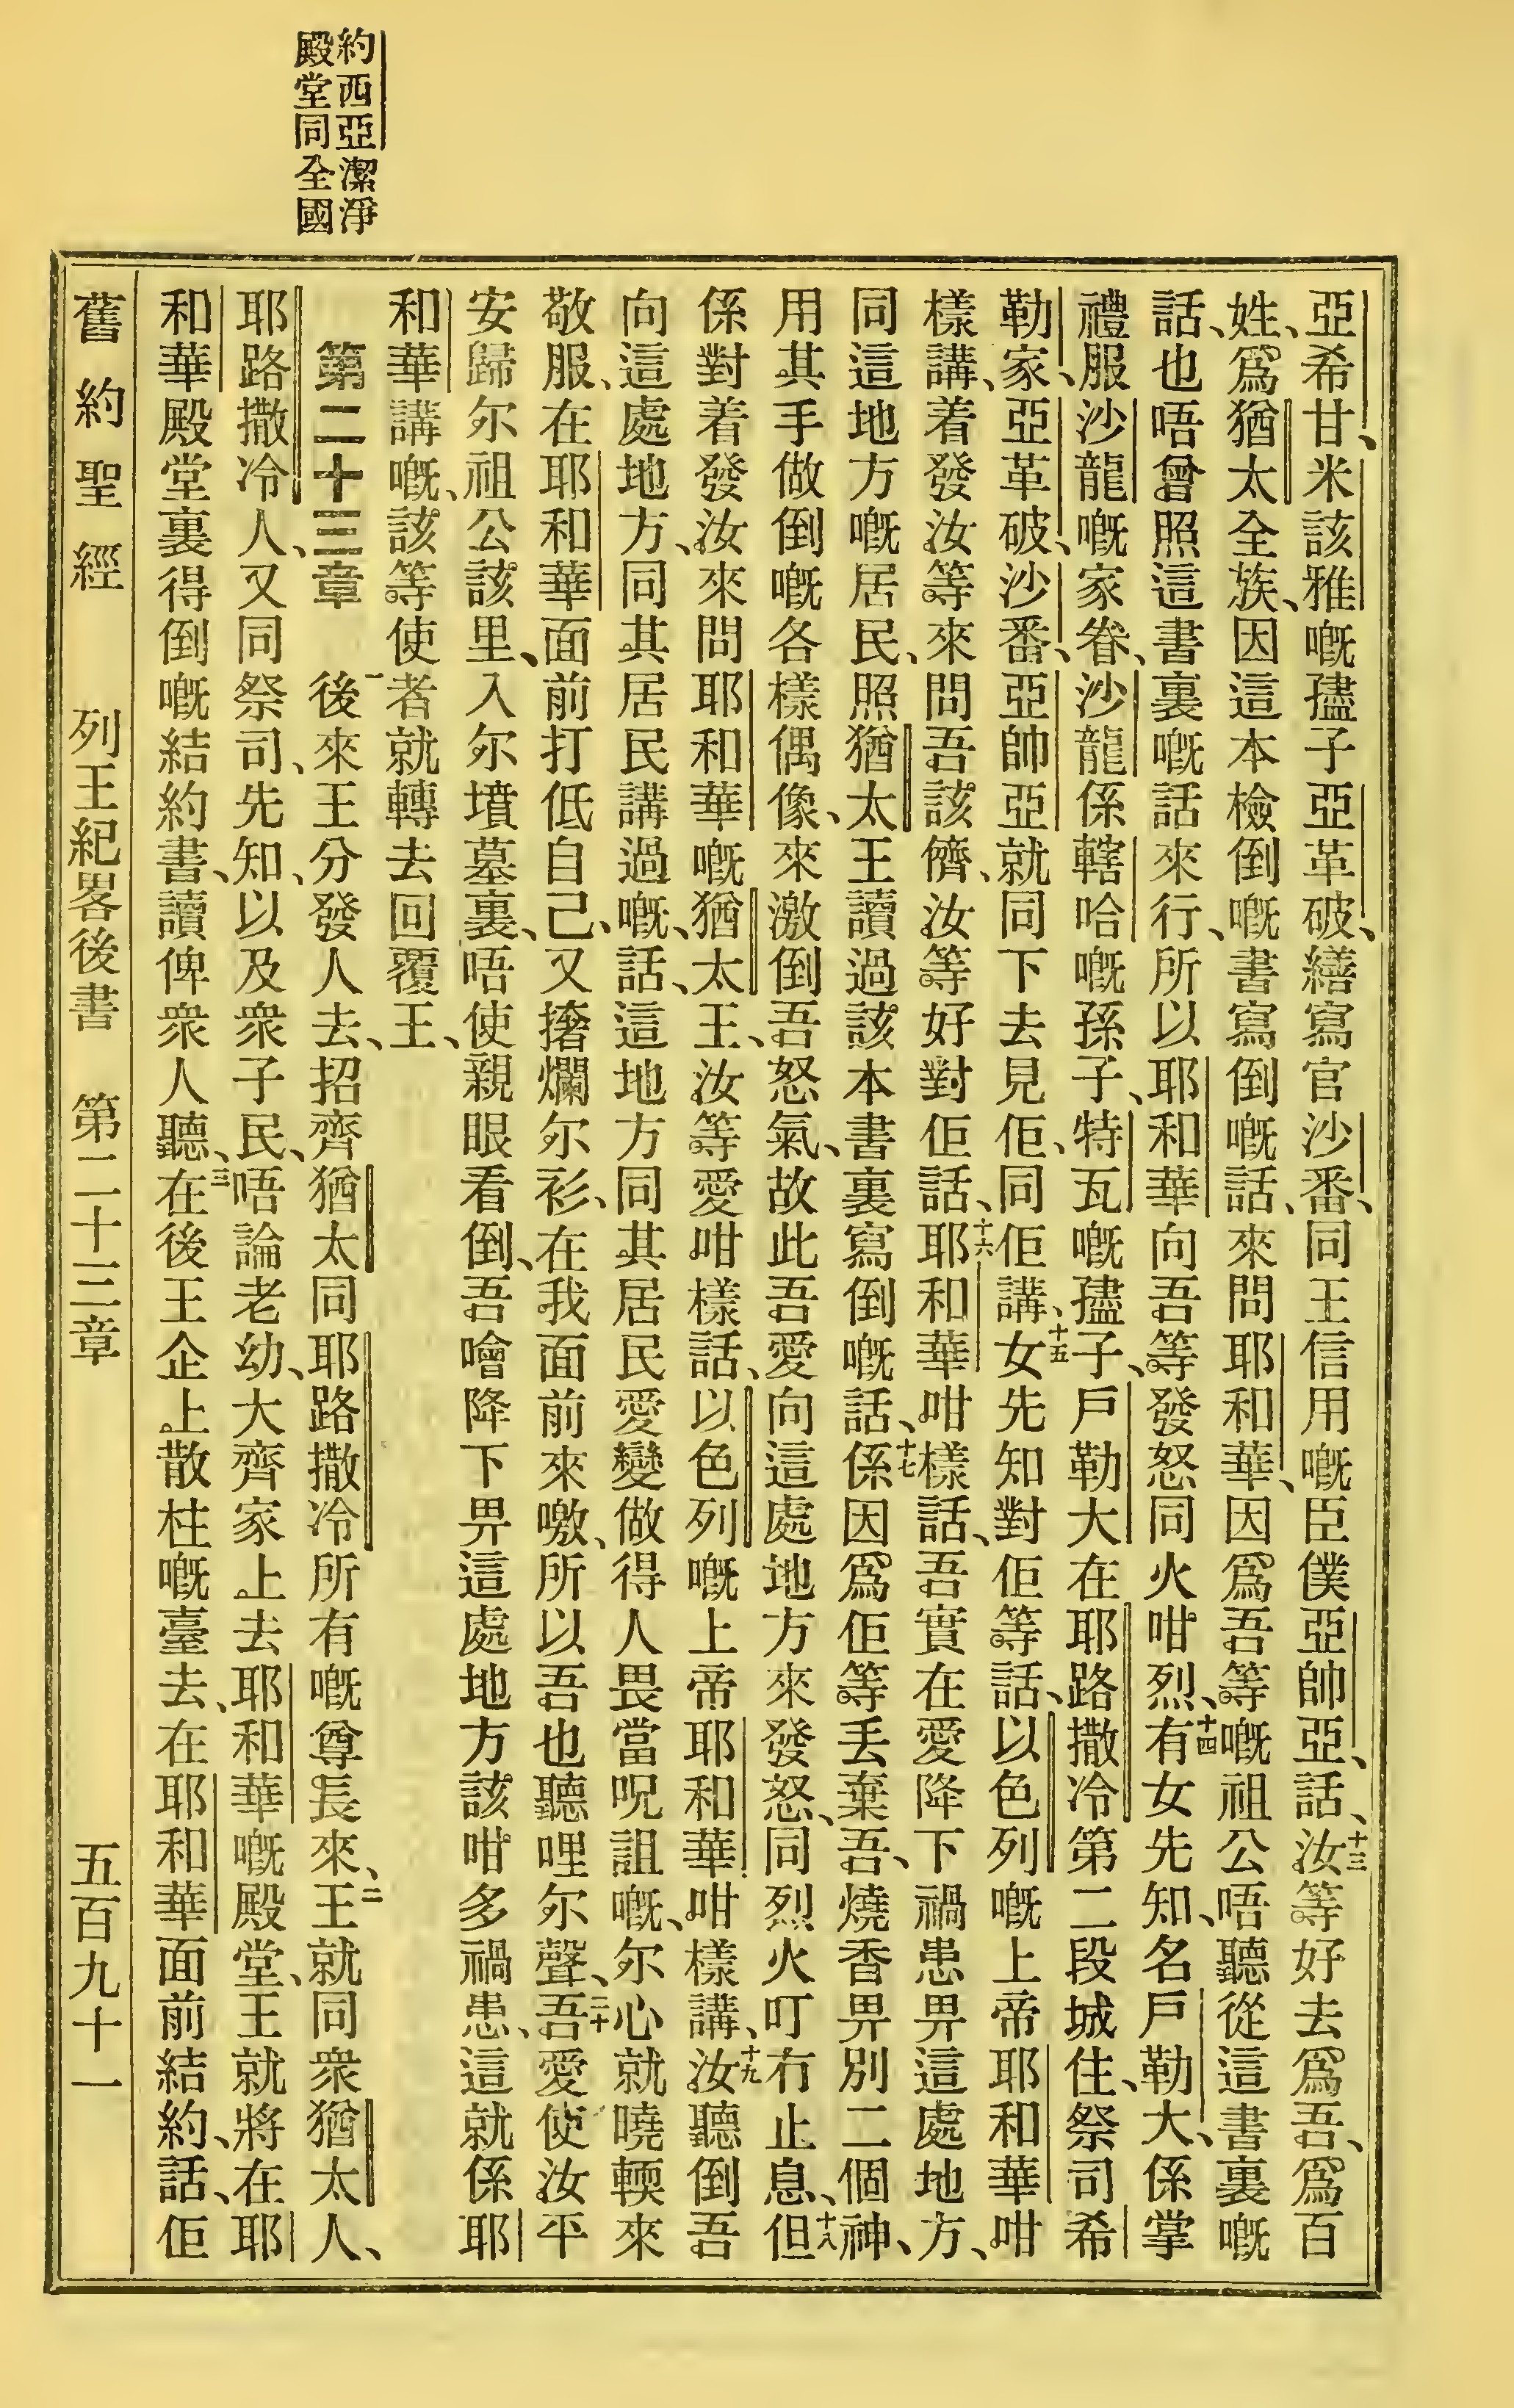 約西亞潔淨
殿堂同全國
亞希甘、米該雅嘅孻子亞革破、繕寫官沙番、同王信用嘅臣僕亞帥亞、話、十三汝等好去爲吾、爲百
姓、爲猶太全族、因這本檢倒嘅書寫倒嘅話、來問耶和華、因爲吾等嘅祖公唔聽從這書裏嘅
話、也唔曾照這書裏嘅話來行、所以耶和華向吾等發怒同火咁烈、十四有女先知、名戶勒大、係掌
禮服沙龍嘅家眷、沙龍係轄哈嘅孫子、特瓦嘅孻子、戶勒大在耶路撒冷第二段城住、祭司希
勒家、亞革破、沙番、亞帥亞就同下去見佢、同佢講、十五女先知對佢等話、以色列嘅上帝耶和華咁
樣講、着發汝等來問吾該儕、汝等好對佢話、十六耶和華咁樣話、吾實在愛降下禍患畀這處地方、
同這地方嘅居民、照猶太王讀過該本書裏寫倒嘅話、十七係因爲佢等丢棄吾、燒香畀別二個神、
用其手做倒嘅各樣偶像、來激倒吾怒氣、故此吾愛向這處地方來發怒、同烈火叮冇止息、十八但
係對着發汝來問耶和華嘅猶太王、汝等愛咁樣話、以色列嘅上帝耶和華咁樣講、十九汝聽倒吾
向這處地方、同其居民講過嘅話、這地方同其居民愛變做得人畏當呪詛嘅、尔心就曉輭來
敬服、在耶和華面前打低自己、又撦爛尔衫、在我面前來噭、所以吾也聽哩尔聲、二十吾愛使汝平
安歸尔祖公該里、入尔墳墓裏、唔使親眼看倒、吾噲降下畀這處地方該咁多禍患、這就係耶
和華講嘅、該等使者就轉去回覆王、
第二十三章　一後來王分發人去、招齊猶太同耶路撒冷所有嘅尊長來、二王就同衆猶太人、
耶路撒冷人、又同祭司、先知、以及衆子民、唔論老幼、大齊家上去耶和華嘅殿堂、王就將在耶
和華殿堂裏得倒嘅結約書、讀俾衆人聽、三在後王企上散柱嘅臺去、在耶和華面前結約、話、佢
舊約聖經　列王紀畧後書　第二十三章　五百九十一